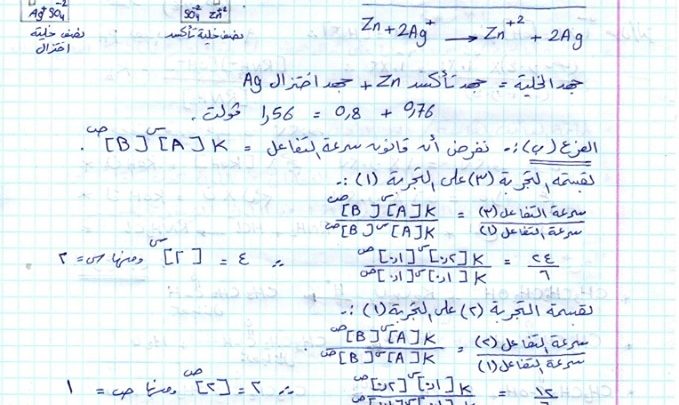 Ag⁺ SO₄⁻²
SO₄⁻² Zn⁺²
نصف خلية تأكسد
نصف خلية
اختزال
Zn + 2Ag⁺ → Zn⁺² + 2Ag
جهد الخلية = جهد تأكسد Zn + جهد اختزال Ag
٠,٧٦ + ٠,٨ = ١,٥٦ ڤولت .
الفرع (ب) :- نفرض أن قانون سرعة التفاعل = K [A]س [B]ص .
لقسمة التجربة (٣) على التجربة (١) :-
سرعة التفاعل (٣) / سرعة التفاعل (١) = K [A]س [B]ص / K [A]س [B]ص
٢٤ / ٦ = K [٠,٢]س [٠,١]ص / K [٠,١]س [٠,١]ص ∴ ٤ = [٢]س ومنها س = ٢
لقسمة التجربة (٢) على التجربة (١) :-
سرعة التفاعل (٢) / سرعة التفاعل (١) = K [A]س [B]ص / K [A]س [B]ص .
١٢ / ٦ = K [٠,١]س [٠,٢]ص ∴ ٢ = [٢]ص ومنها ص = ١